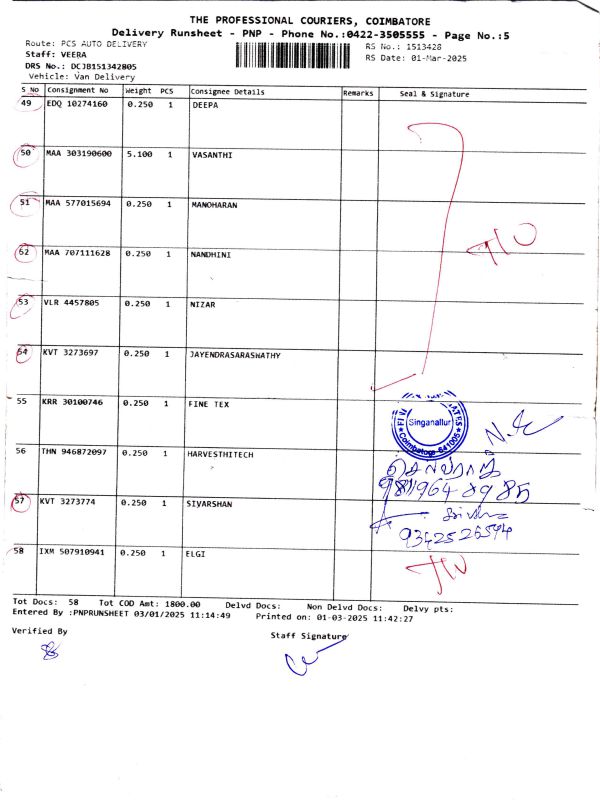 THE PROFESSIONAL COURIERS, COIMBATORE
Delivery Runsheet - PNP - Phone No.:0422-3505555 - Page No.:5
Route: PCS AUTO DELIVERY RS No.: 1513428
Staff: VEERA RS Date: 01-Mar-2025
DRS No.: DCJB151342805
Vehicle: Van Delivery
S No Consignment No Weight PCS Consignee Details Remarks Seal & Signature
49 EDQ 10274160 0.250 1 DEEPA
50 MAA 303190600 5.100 1 VASANTHI
51 MAA 577015694 0.250 1 MANOHARAN
52 MAA 707111628 0.250 1 NANDHINI
53 VLR 4457805 0.250 1 NIZAR
54 KVT 3273697 0.250 1 JAYENDRASARASWATHY
55 KRR 30100746 0.250 1 FINE TEX
Singanallur
Coimbatore 641005
56 THN 946872097 0.250 1 HARVESTHITECH
57 KVT 3273774 0.250 1 SIVARSHAN
9342526594
58 IXM 507910941 0.250 1 ELGI
Tot Docs: 58 Tot COD Amt: 1800.00 Delvd Docs: Non Delvd Docs: Delvy pts:
Entered By :PNPRUNSHEET 03/01/2025 11:14:49 Printed on: 01-03-2025 11:42:27
Verified By Staff Signature